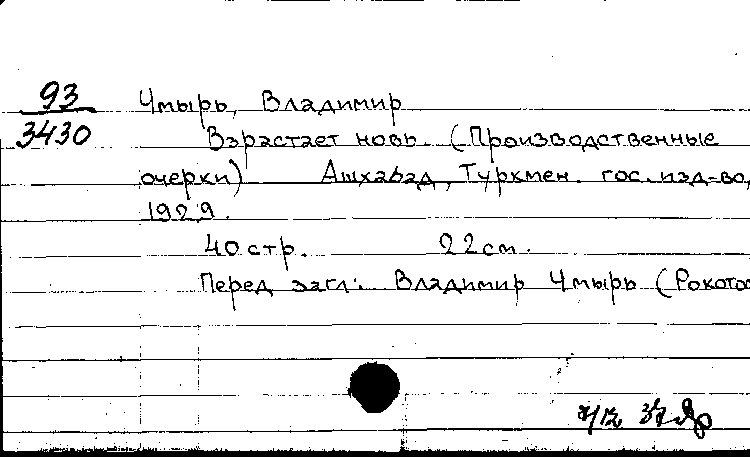 93
3430
Чмырь, Владимир
Взрастает новь. (Производственные
очерки) Ашхабад, Туркмен. гос. изд-во,
1929.
40 стр. 22 см.
Перед загл: Владимир Чмырь (Рокотов